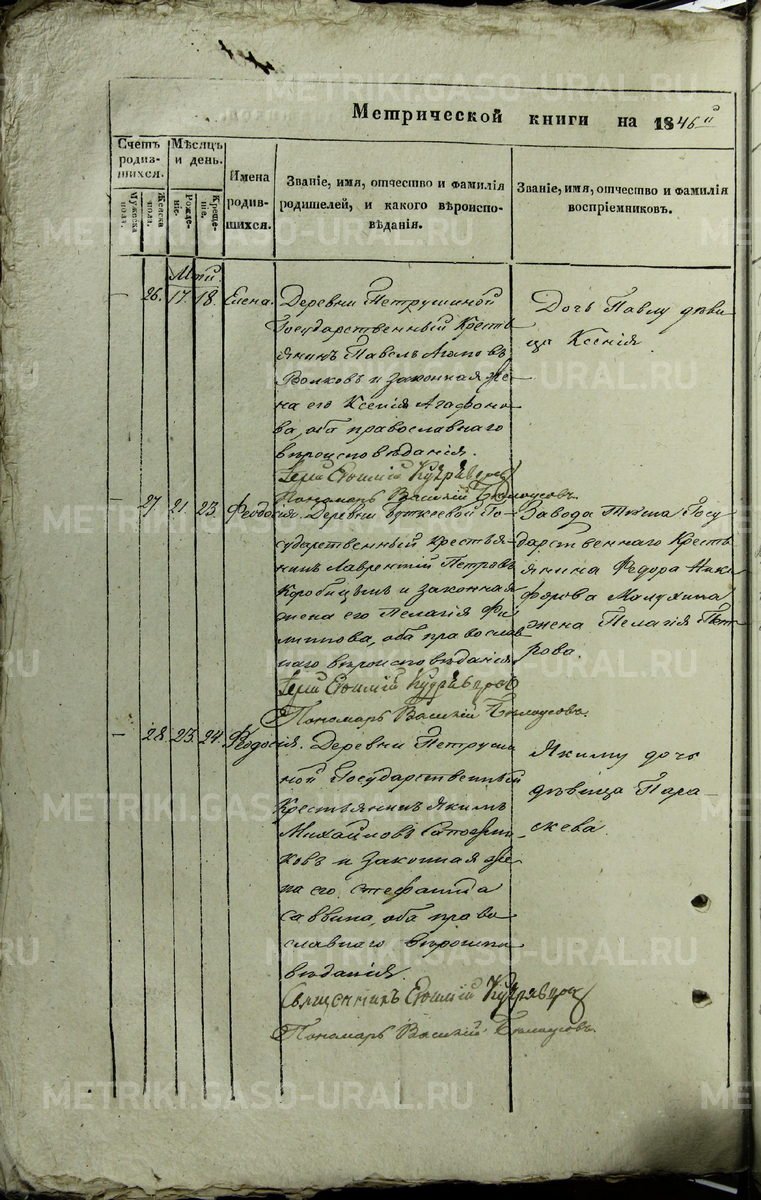 Метрической книги на 1846й
Счетъ родив-шихся.
Мѣсяцъ и день.
Имена родив-шихся.
Званіе, имя, отчество и фамилія родителей, и какого вѣроиспо-вѣданія.
Званіе, имя, отчество и фамилія воспріемниковъ.
Мужеска пола.
Женска пола.
Рожде-ніе.
Креще-ніе.
Май
— 26. 17. 18. Елена.
Деревни Петрушиной
Государственный Кресть
янинъ Павелъ Агаповъ
Волковъ и законная же
на его Ксенія Агафоно
ва, оба православнаго
вѣроисповѣданія.
Іерей Евѳимій Кудрявцовъ
Пономарь Василій Бѣлоусовъ.
Дочь Павлу дѣви
ца Ксенія
— 27. 21. 23. Феодосія.
Деревни Го-
сударственный крестья
нинъ Лаврентій Петровъ
Коробицынъ и законная
жена его Пелагія Фи
липпова, оба православ
наго вѣроисповѣданія
Іерей Евѳимій Кудрявцовъ
Пономарь Василій Бѣлоусовъ.
Завода Госу
дарственнаго Кресть
янина Федора Ники
форова Малухина
жена Пелагія Пет
рова.
— 28. 23. 24. Феодосія.
Деревни Петруши
ной Государственный
Крестьянинъ Якимъ
Михайловъ Сапожни
ковъ и законная же
на его Стефанида
Саввина, оба право
славнаго вѣроиспо
вѣданія.
Священникъ Евѳимій Кудрявцовъ
Пономарь Василій Бѣлоусовъ.
Якиму дочь
дѣвица Пара
скева
METRIKI.GASO-URAL.RU